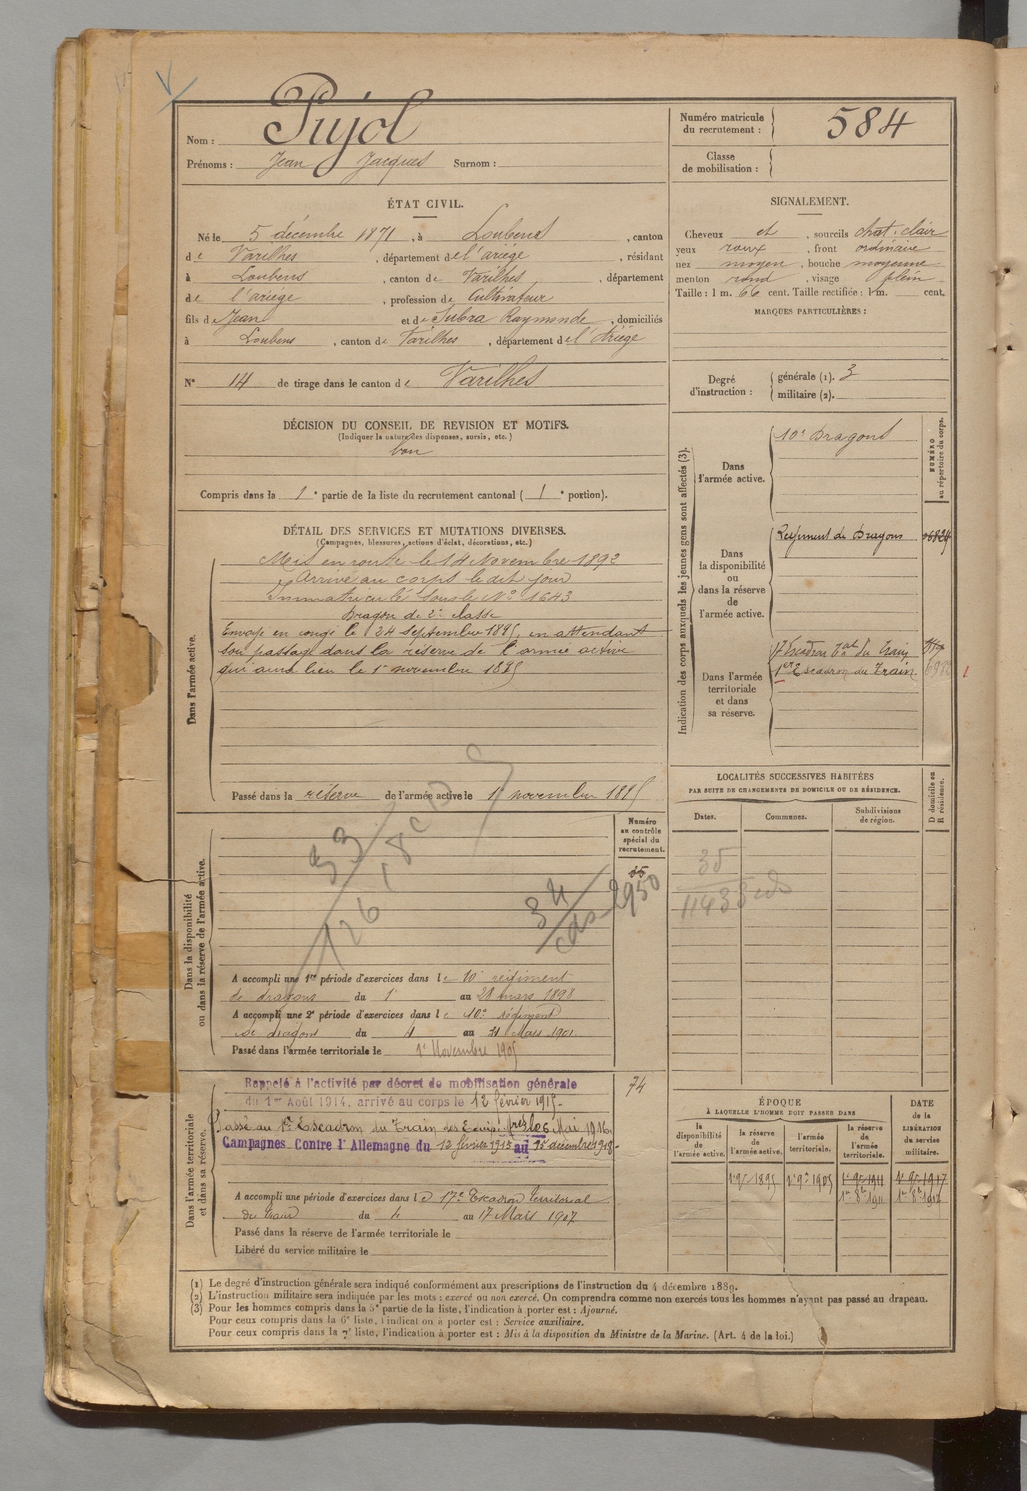 Nom : Pujol
Prénoms : Jean Jacques Surnom :
Numéro matricule du recrutement : 584
Classe de mobilisation :
ÉTAT CIVIL.
Né le 5 décembre 1871, à Loubens, canton
de Varilhes, département de l'ariège, résidant
à Loubens, canton de Varilhes, département
de l'ariège, profession de Cultivateur
fils de Jean et de Subra Raymonde, domiciliés
à Loubens, canton de Varilhes, département de l'Ariège
N° 14 de tirage dans le canton de Varilhes
SIGNALEMENT.
Cheveux et, sourcils chat. clair
yeux roux, front ordinaire
nez moyen, bouche moyenne
menton rond, visage plein
Taille : 1 m. 66 cent. Taille rectifiée : 1 m. cent.
MARQUES PARTICULIÈRES :
Degré d'instruction : générale (1). 3
militaire (2).
DÉCISION DU CONSEIL DE REVISION ET MOTIFS.
(Indiquer la nature des dispenses, sursis, etc.)
bon
Compris dans la 1e partie de la liste du recrutement cantonal (1e portion).
DÉTAIL DES SERVICES ET MUTATIONS DIVERSES.
(Campagnes, blessures, actions d'éclat, décorations, etc.)
Dans l'armée active.
Mis en route le 14 Novembre 1892
Arrivé au corps le dit jour
Immatriculé sous le N° 1643
Dragon de 2e classe
Envoyé en congé le 24 Septembre 1895, en attendant
son passage dans la réserve de l'armée active
qui aura lieu le 1er novembre 1895
Passé dans la réserve de l'armée active le 1er novembre 1895
Indication des corps auxquels les jeunes gens sont affectés (3).
NUMÉRO au répertoire du corps.
Dans l'armée active.
10e Dragons
Dans la disponibilité ou dans la réserve de l'armée active.
Régiment de Dragons
Dans l'armée territoriale et dans sa réserve.
17e Escadron Tal du Train
1er Escadron du Train
LOCALITÉS SUCCESSIVES HABITÉES
PAR SUITE DE CHANGEMENTS DE DOMICILE OU DE RÉSIDENCE.
D domicile ou R résidence.
Dates. Communes. Subdivisions de région.
35
Dans la disponibilité ou dans la réserve de l'armée active.
Numéro au contrôle spécial du recrutement.
2950
33
126
34
A accompli une 1re période d'exercices dans le 10e régiment
de dragons du 1er au 28 mars 1898
A accompli une 2e période d'exercices dans le 10e régiment
de dragons du 4 au 31 Mars 1901
Passé dans l'armée territoriale le 1er Novembre 1905
Dans l'armée territoriale et dans sa réserve.
74
Rappelé à l'activité par décret de mobilisation générale
du 1er Août 1914, arrivé au corps le 12 février 1915.
Passé au 1er Escadron du Train des Equip. le 6 Mai 1916
Campagnes Contre l'Allemagne du 12 février 1915 au 15 décembre 1918
A accompli une période d'exercices dans le 17e Escadron Territorial
du Train du 4 au 17 Mars 1907
Passé dans la réserve de l'armée territoriale le
Libéré du service militaire le
ÉPOQUE
À LAQUELLE L'HOMME DOIT PASSER DANS
la disponibilité de l'armée active.
la réserve de l'armée active.
l'armée territoriale.
la réserve de l'armée territoriale.
DATE de la LIBÉRATION du service militaire.
1er 9bre 1895 1er 9bre 1905 1er 9bre 1911 1er 9bre 1917
1er 8bre 1911 1er 8bre 1917
(1) Le degré d'instruction générale sera indiqué conformément aux prescriptions de l'instruction du 4 décembre 1889.
(2) L'instruction militaire sera indiquée par les mots : exercé ou non exercé. On comprendra comme non exercés tous les hommes n'ayant pas passé au drapeau.
(3) Pour les hommes compris dans la 5e partie de la liste, l'indication à porter est : Ajourné.
Pour ceux compris dans la 6e liste, l'indication à porter est : Service auxiliaire.
Pour ceux compris dans la 7e liste, l'indication à porter est : Mis à la disposition du Ministre de la Marine. (Art. 4 de la loi.)